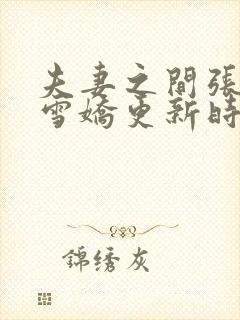 夫妻之間張
雪嬌更新時
錦绣灰